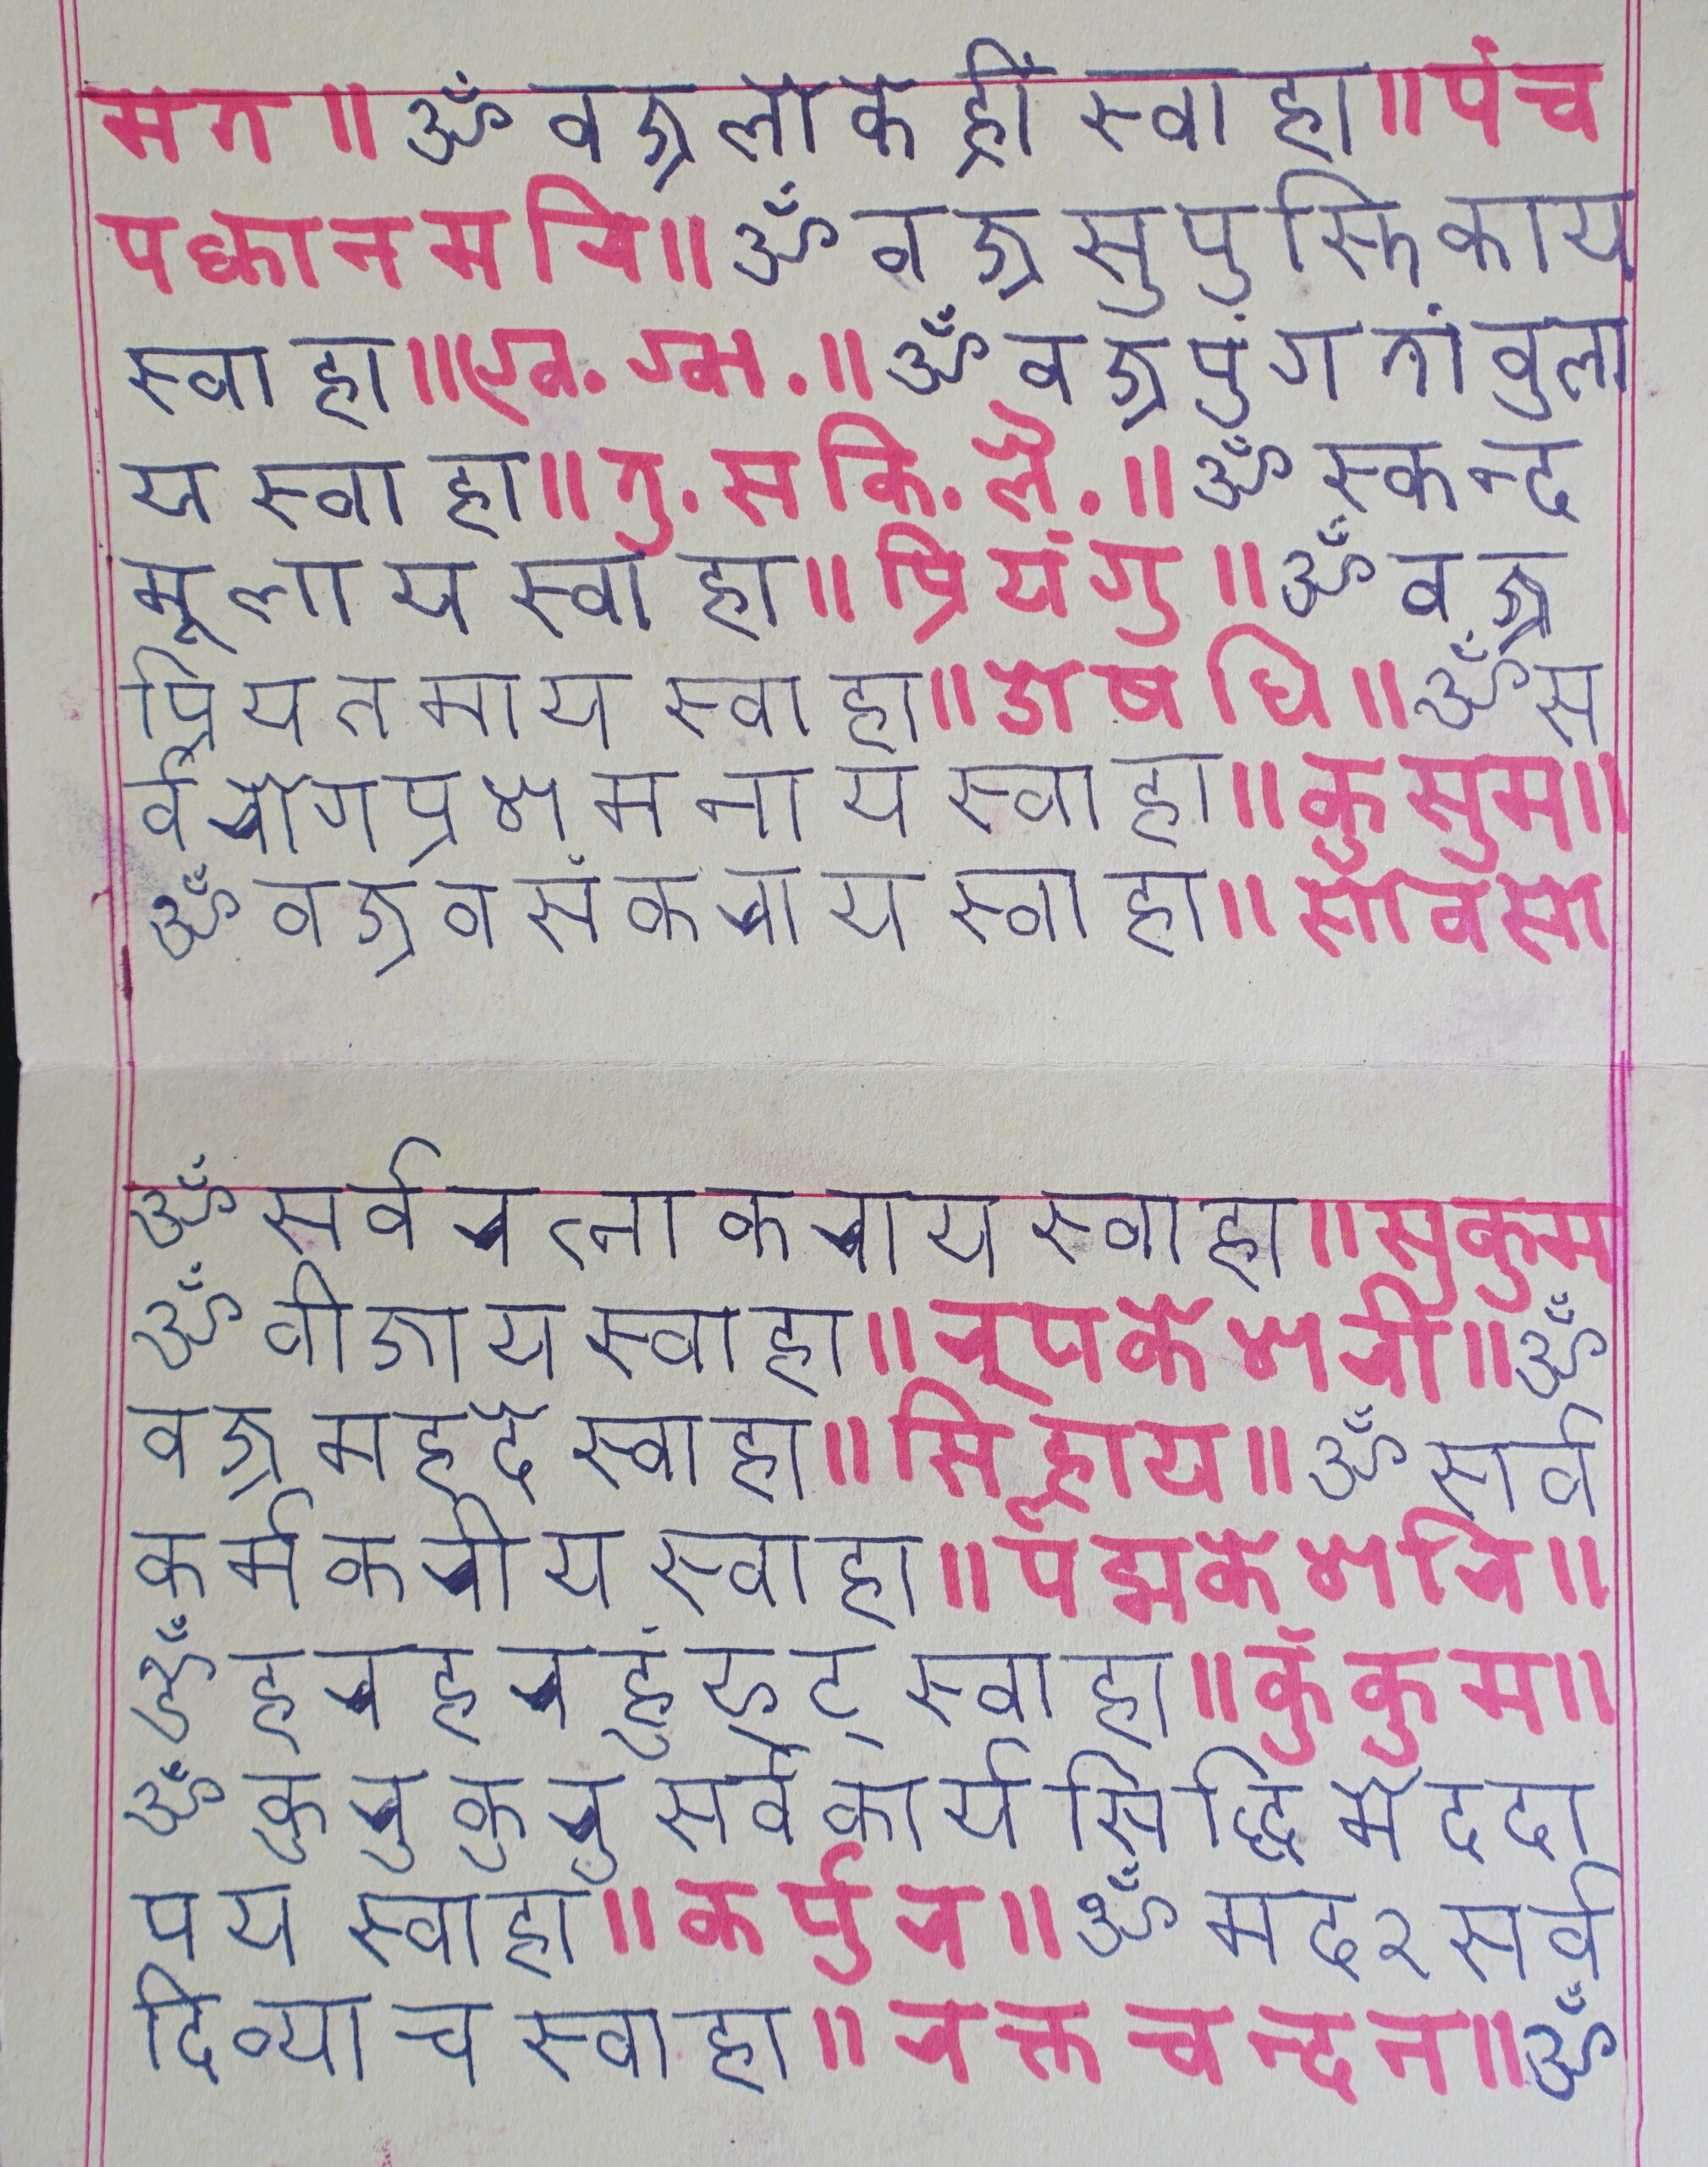 मत ॥ ॐ वज्रलोके ह्रीं स्वाहा ॥ पंच
पक्वानमरि ॥ ॐ वज्र सुपुस्तिकाय
स्वाहा ॥ ॐ वज्रपुंगतांवुला
य स्वाहा ॥ गु. स कि. लै. ॥ ॐ स्कन्द
मूलाय स्वाहा ॥ प्रियंगु ॥ ॐ वज्र
प्रियतमाय स्वाहा ॥ ॐ स
र्वरोगप्रशमनाय स्वाहा ॥ कुसुम ॥
ॐ वज्रवसंकराय स्वाहा ॥
ॐ सर्वरत्नाकराय स्वाहा ॥ सुकुम
ॐ वीजाय स्वाहा ॥ रूपकेशरी ॥ ॐ
वज्र महदे स्वाहा ॥ सिह्लाय ॥ ॐ सर्व
कर्मकरीय स्वाहा ॥ पद्मकेशरि ॥
ॐ हर हर हूं फट् स्वाहा ॥ कुंकुम ॥
ॐ कुरु कुरु सर्वकार्य सिद्धि मे ददा
पय स्वाहा ॥ कर्पुर ॥ ॐ मद२ सर्व
दिव्याच स्वाहा ॥ रक्तचन्दन ॥ ॐ